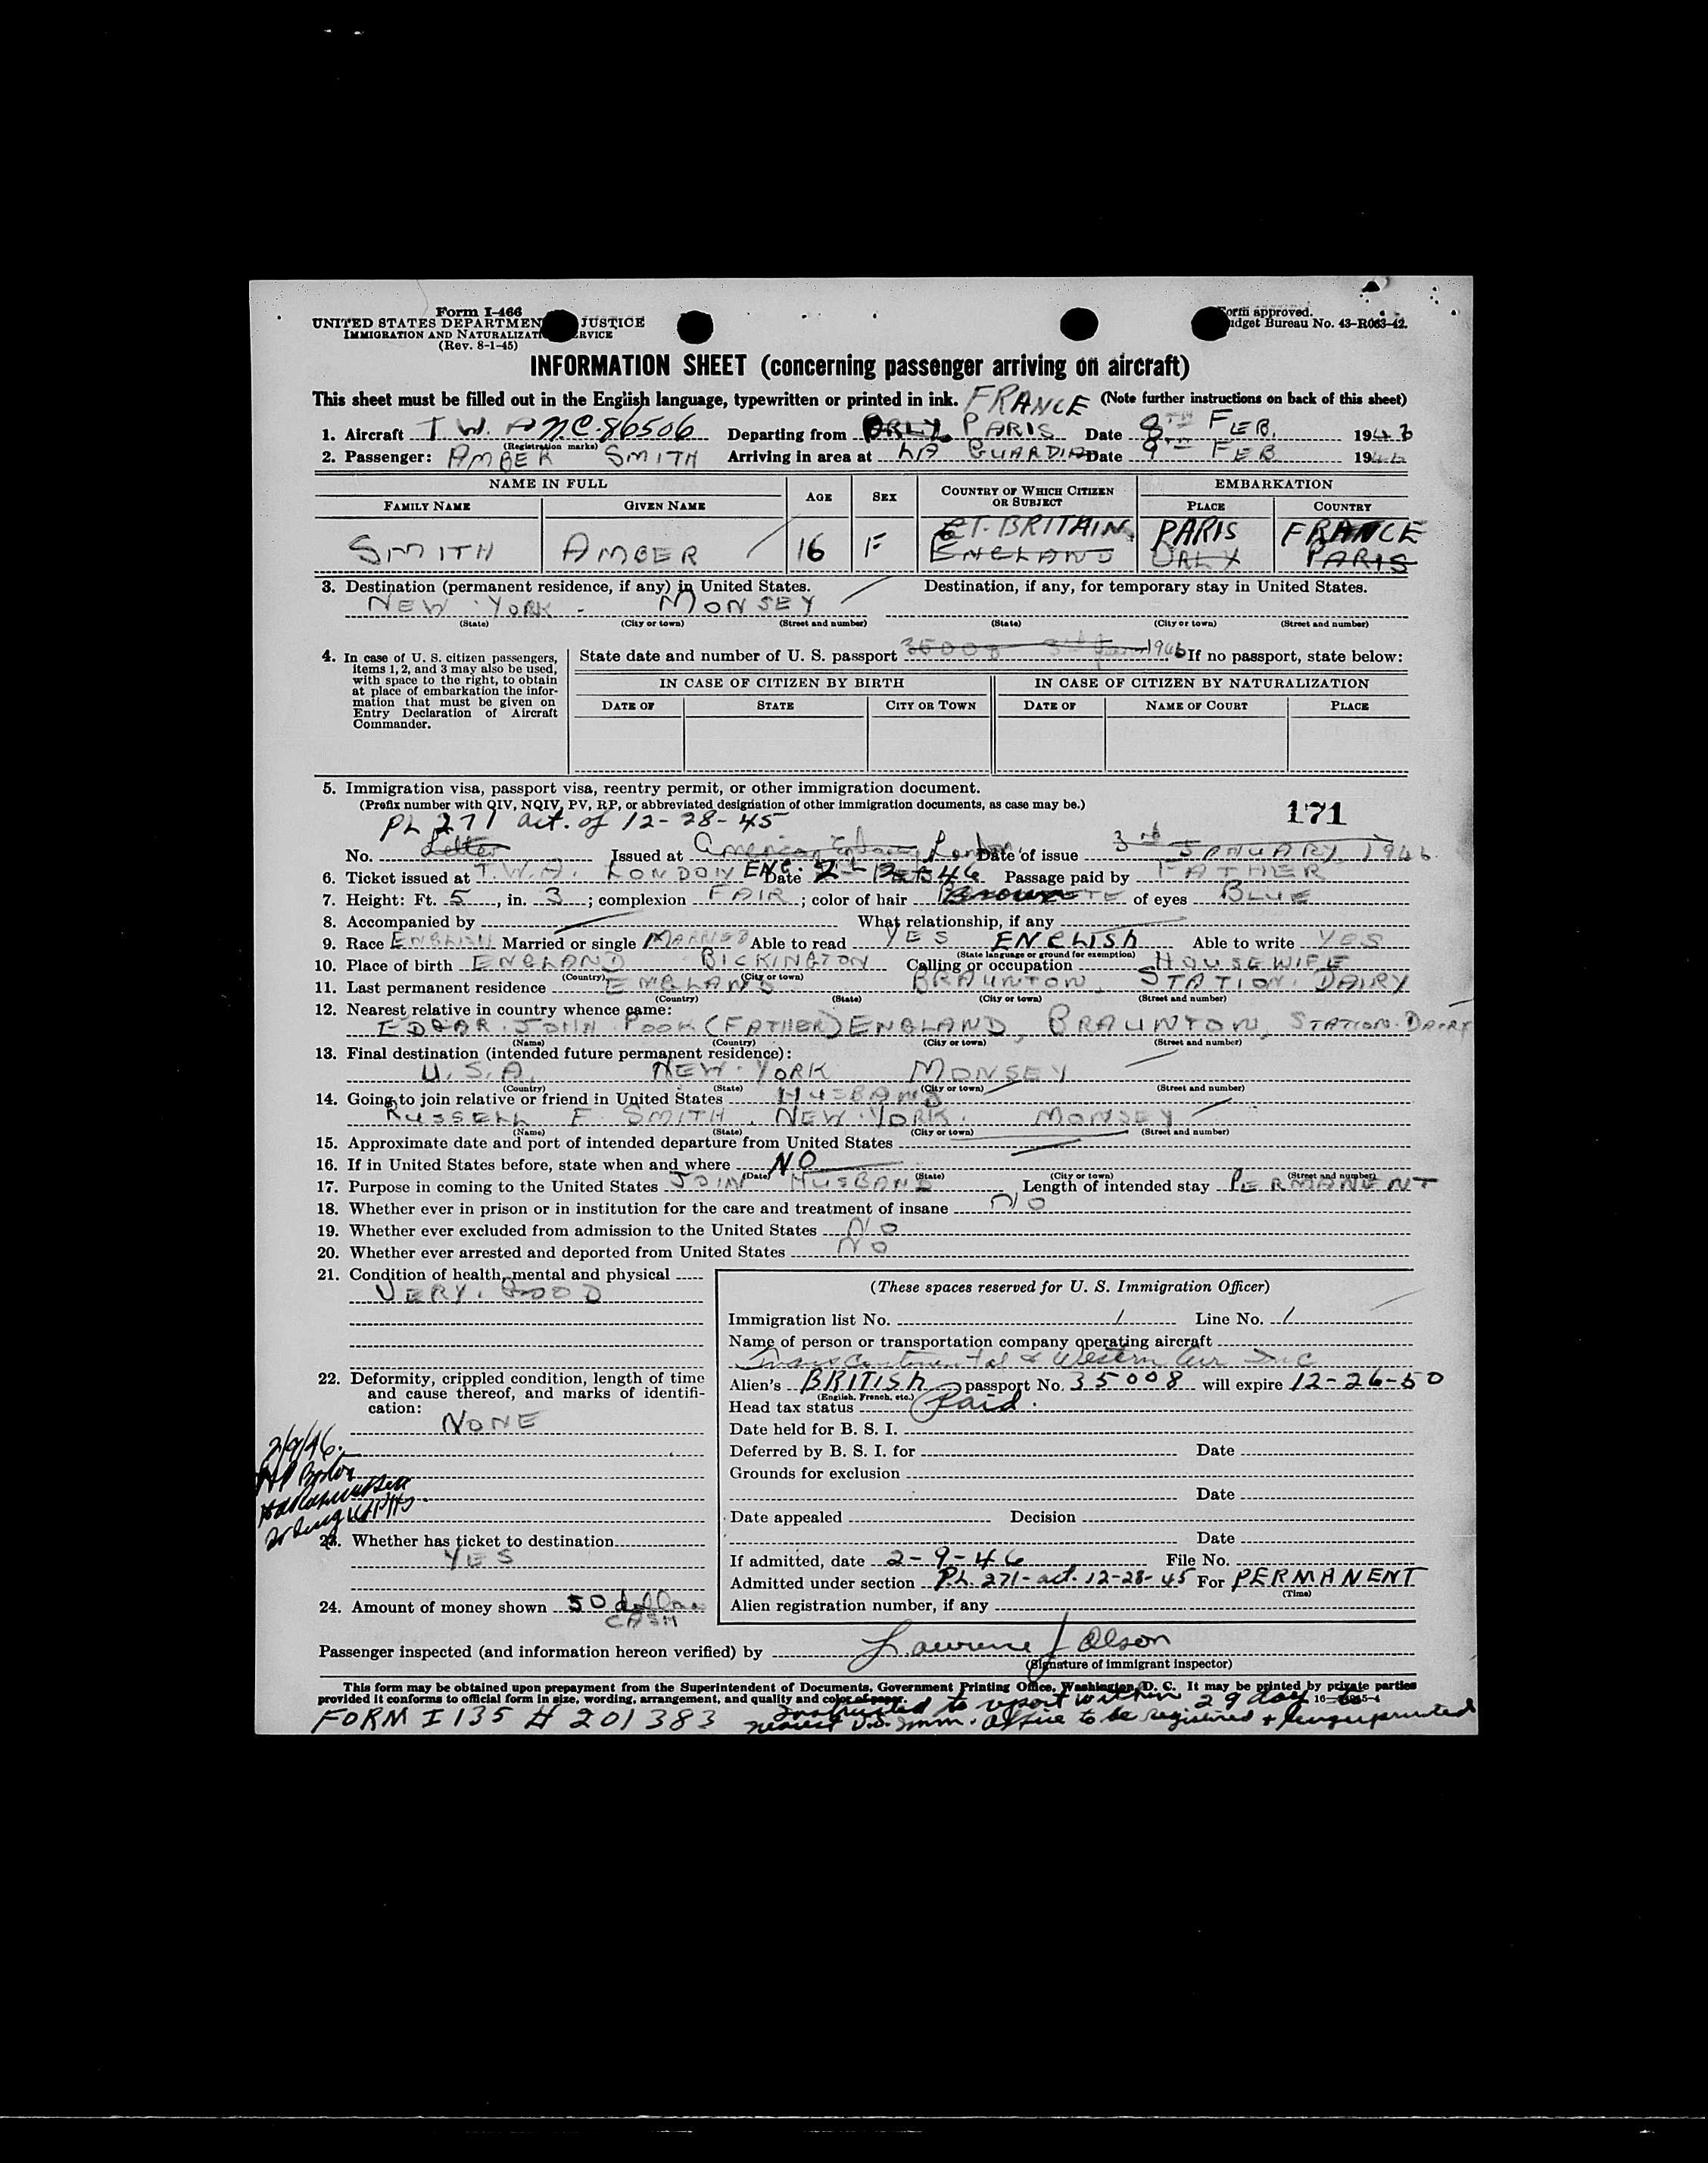 Form I-466
UNITED STATES DEPARTMEN JUSTICE
IMMIGRATION AND NATURALIZATI RVICE
(Rev. 8-1-45)
orm approved.
udget Bureau No. 43-R063-42.
INFORMATION SHEET (concerning passenger arriving on aircraft)
This sheet must be filled out in the English language, typewritten or printed in ink. FRANCE (Note further instructions on back of this sheet)
1. Aircraft T. W. A N.C. 86506 Departing from ORLY PARIS Date 8TH FEB. 1946
(Registration marks)
2. Passenger: AMBER SMITH Arriving in area at LA GUARDIA Date 9TH FEB 1946
NAME IN FULL AGE SEX COUNTRY OF WHICH CITIZEN OR SUBJECT EMBARKATION
FAMILY NAME GIVEN NAME PLACE COUNTRY
GT. BRITAIN PARIS FRANCE
SMITH AMBER 16 F ENGLAND ORLY PARIS
3. Destination (permanent residence, if any) in United States. Destination, if any, for temporary stay in United States.
NEW YORK - MONSEY
(State) (City or town) (Street and number) (State) (City or town) (Street and number)
4. In case of U. S. citizen passengers, items 1, 2, and 3 may also be used, with space to the right, to obtain at place of embarkation the information that must be given on Entry Declaration of Aircraft Commander.
State date and number of U. S. passport 35008 3rd Jan 1946 If no passport, state below:
IN CASE OF CITIZEN BY BIRTH IN CASE OF CITIZEN BY NATURALIZATION
DATE OF STATE CITY OR TOWN DATE OF NAME OF COURT PLACE
5. Immigration visa, passport visa, reentry permit, or other immigration document.
(Prefix number with QIV, NQIV, PV, RP, or abbreviated designation of other immigration documents, as case may be.)
171
PL 271 act. of 12-28-45
No. Letter Issued at American Embassy London Date of issue 3rd JANUARY 1946
6. Ticket issued at T.W.A. LONDON ENG. Date 2-2-46 Passage paid by FATHER
7. Height: Ft. 5, in. 3; complexion FAIR; color of hair Brown of eyes BLUE
8. Accompanied by What relationship, if any
9. Race ENGLISH Married or single MARRIED Able to read YES ENGLISH Able to write YES
(State language or ground for exemption)
10. Place of birth ENGLAND BICKINGTON Calling or occupation HOUSEWIFE
(Country) (City or town)
11. Last permanent residence ENGLAND BRAUNTON, STATION DAIRY
(Country) (State) (City or town) (Street and number)
12. Nearest relative in country whence came:
EDGAR JOHN POOK (FATHER) ENGLAND, BRAUNTON, STATION DAIRY
(Name) (Country) (City or town) (Street and number)
13. Final destination (intended future permanent residence):
U.S.A. NEW YORK MONSEY
(Country) (State) (City or town) (Street and number)
14. Going to join relative or friend in United States HUSBAND
RUSSELL F. SMITH. NEW YORK. MONSEY
(Name) (State) (City or town) (Street and number)
15. Approximate date and port of intended departure from United States
16. If in United States before, state when and where NO
(Date) (State) (City or town) (Street and number)
17. Purpose in coming to the United States JOIN HUSBAND Length of intended stay PERMANENT
18. Whether ever in prison or in institution for the care and treatment of insane NO
19. Whether ever excluded from admission to the United States NO
20. Whether ever arrested and deported from United States NO
21. Condition of health, mental and physical
VERY GOOD
22. Deformity, crippled condition, length of time and cause thereof, and marks of identification:
NONE
2/9/46.
23. Whether has ticket to destination
YES
24. Amount of money shown 50 dollars
CASH
(These spaces reserved for U. S. Immigration Officer)
Immigration list No. 1 Line No. 1
Name of person or transportation company operating aircraft
Transcontinental & Western Air Inc
Alien's BRITISH passport No. 35008 will expire 12-26-50
(English, French, etc.)
Head tax status Paid.
Date held for B. S. I.
Deferred by B. S. I. for Date
Grounds for exclusion
Date
Date appealed Decision
Date
If admitted, date 2-9-46 File No.
Admitted under section P.L. 271-act. 12-28-45 For PERMANENT
(Time)
Alien registration number, if any
Passenger inspected (and information hereon verified) by Lawrence J Olson
(Signature of immigrant inspector)
This form may be obtained upon prepayment from the Superintendent of Documents, Government Printing Office, Washington, D. C. It may be printed by private parties
provided it conforms to official form in size, wording, arrangement, and quality and color of paper.
FORM I 135 # 201383
Instructed to report within 29 days to
nearest U.S. Imm. Office to be registered + fingerprinted